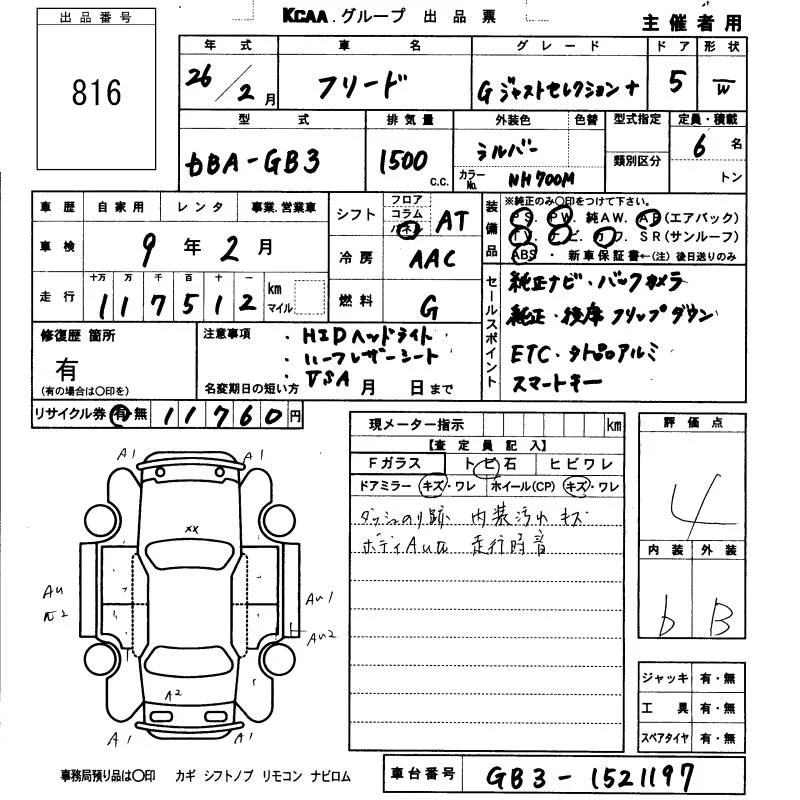 KCAA.グループ 出品票
主催者用
出品番号
816
年式 車名 グレード ドア 形状
26/2月 フリード Gジャストセレクション+ 5 W
型式 排気量 外装色 色替 型式指定 定員・積載
DBA-GB3 1500 c.c. シルバー カラーNo. NH700M 類別区分 6名 トン
車歴 自家用 レンタ 事業.営業車
車検 9年2月
十万 万 千 百 十 一
走行 117512 km マイル
シフト フロア コラム パネル AT
冷房 AAC
燃料 G
装備品
※純正のみ〇印をつけて下さい。
PS. PW. 純AW. AB(エアバック)
TV. ナビ. カワ. SR(サンルーフ)
ABS・新車保証書←(注)後日送りのみ
セールスポイント
純正ナビ・バックカメラ
純正・後席フリップダウン
ETC・タナベアルミ
スマートキー
修復歴 箇所
有
(有の場合は〇印を)
注意事項
・HIDヘッドライト
・ハーフレザーシート
・VSA
名変期日の短い方 月 日まで
リサイクル券 有 無 11760円
現メーター指示 km
【査定員記入】
Fガラス トビ石 ヒビワレ
ドアミラー キズ・ワレ ホイール(CP) キズ・ワレ
ダッシュのり跡 内装汚れ キズ
ボディAUワ 走行時音
評価点
4
内装 外装
b B
A1 A1
XX
AU
AU1
AU2
A2
A1 A1
ジャッキ 有・無
工具 有・無
スペアタイヤ 有・無
事務局預り品は〇印 カギ シフトノブ リモコン ナビロム
車台番号 GB3-1521197